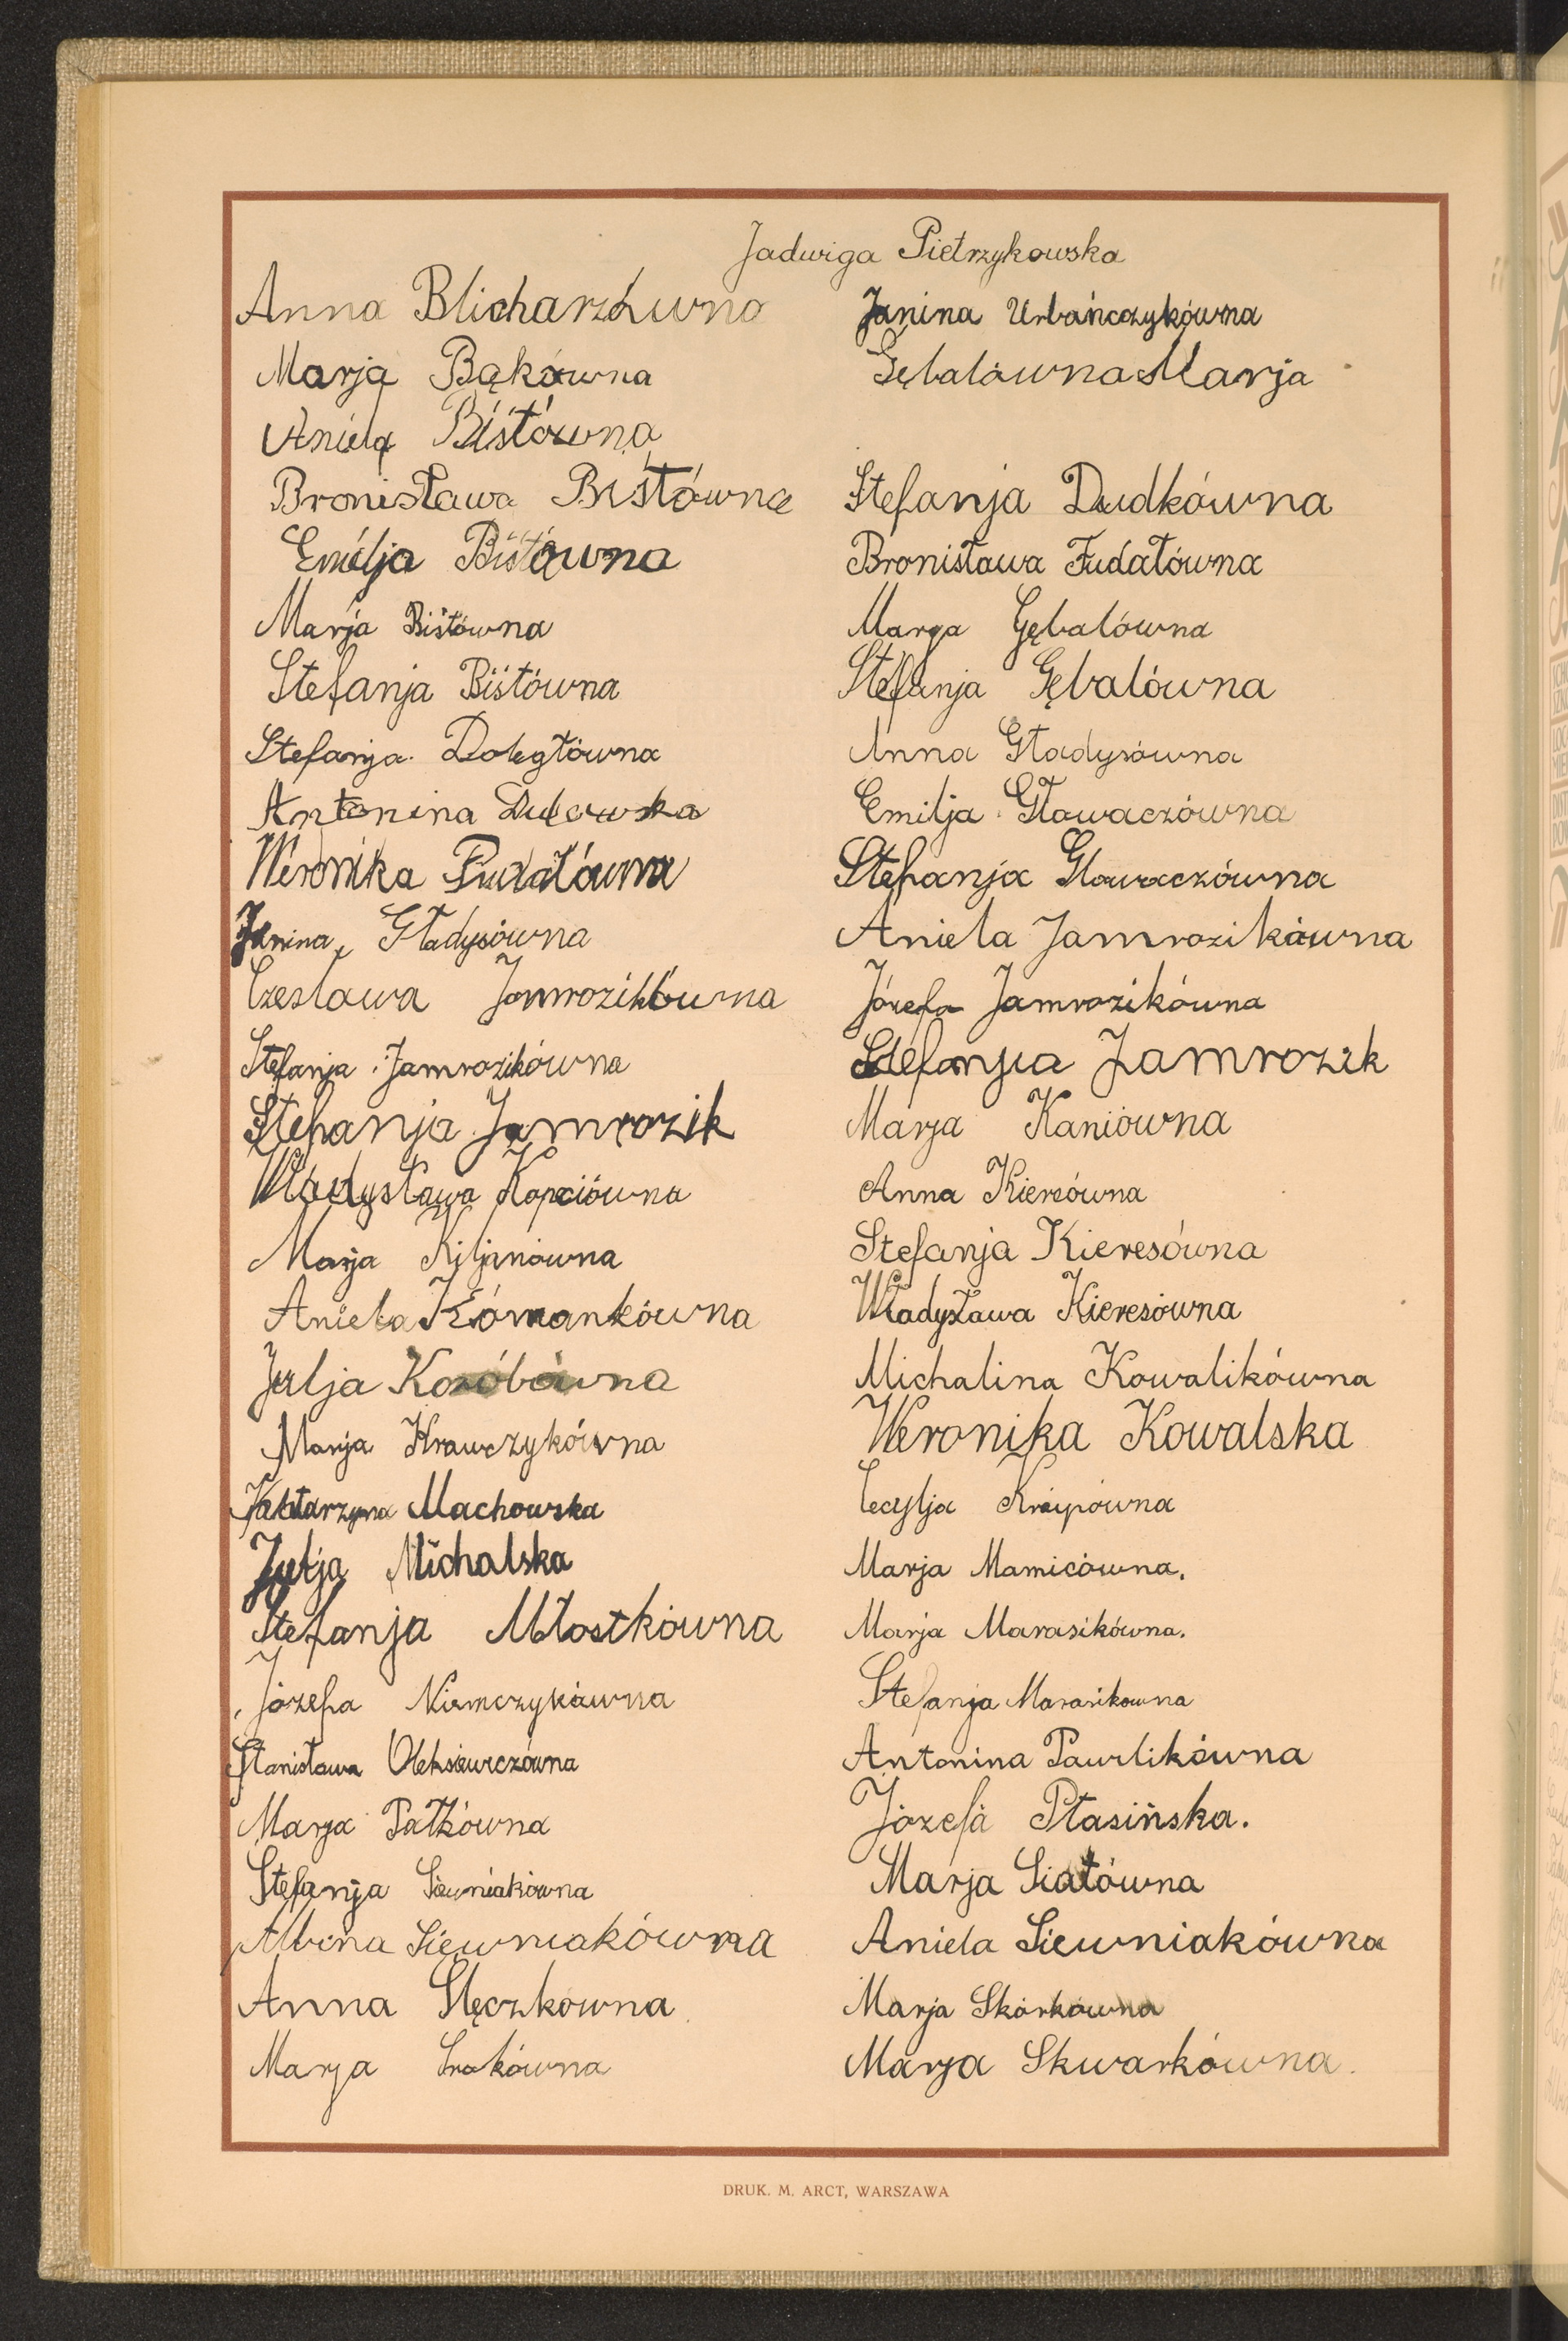 Jadwiga Pietrzykowska
Anna Blicharzówna
Marja Bąkówna
Aniela Bistówna
Bronisława Bistówna
Emilja Bistówna
Marja Bistówna
Stefanja Bistówna
Stefanja Dołęgłówna
Antonina
Weronika Fudałówna
Janina Gładysówna
Czesława Jamrozikówna
Stefanja Jamrozikówna
Stefanja Jamrozik
Władysława Kopciówna
Marja Kiljanówna
Aniela
Julja
Marja Krawczykówna
Katarzyna Machowska
Julja Michalska
Stefanja Młostkówna
Józefa Niemczykówna
Stanisława Oleksiewiczówna
Marja Patkówna
Stefanja Siewniakówna
Albina Siewniakówna
Anna Ślęczkowna
Marja Srokówna
Janina Urbańczykówna
Gębalówna Marja
Stefanja Dudkówna
Bronisława Fudałówna
Marja Gębalówna
Stefanja Gębalówna
Anna Gładysówna
Emilja Głowaczówna
Stefanja Głowaczówna
Aniela Jamrozikówna
Józefa Jamrozikówna
Stefanjia Jamrozik
Marja Kaniówna
Anna Kieresówna
Stefanja Kieresówna
Władysława Kieresówna
Michalina Kowalikówna
Weronika Kowalska
Cecylja
Marja Mamicówna.
Marja Marasikówna.
Stefanja Marasikowna
Antonina Pawlikówna
Józefa Ptasińska.
Marja Siatówna
Aniela Siewniakówna
Marja Skórkówna
Marja Skwarkówna.
DRUK. M. ARCT, WARSZAWA